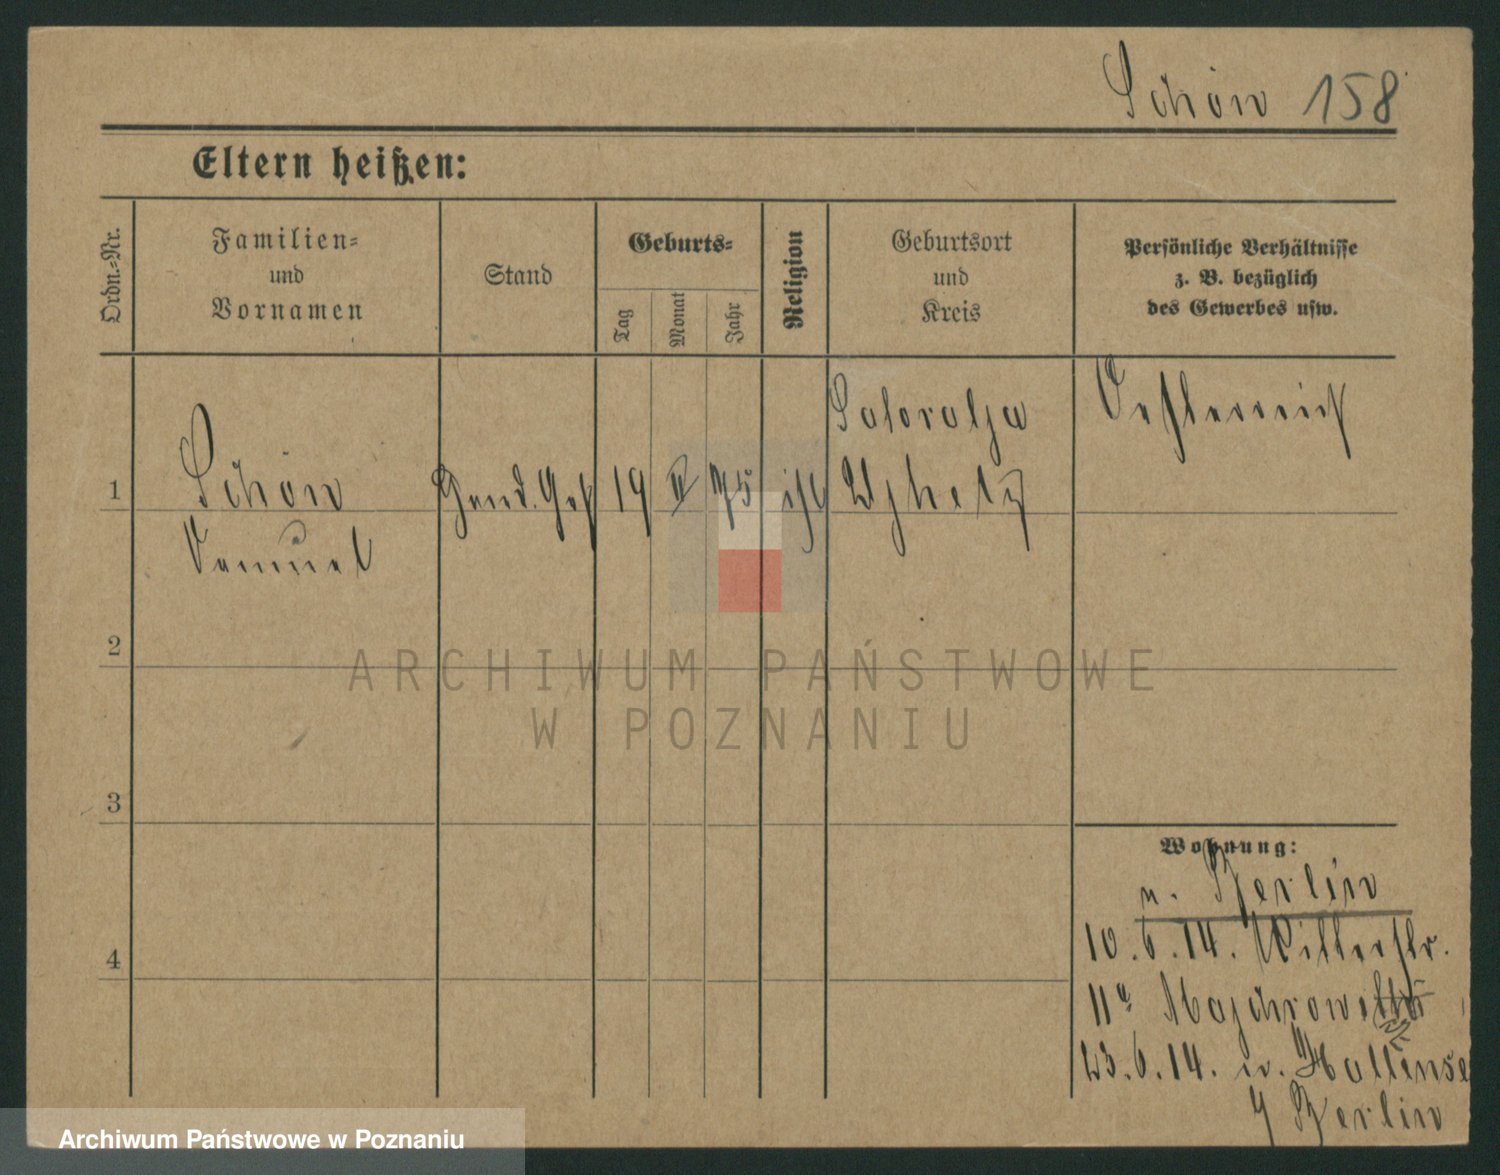 Schön 158
Eltern heißen:
Ordn.-Nr.
Familien-
und
Vornamen
Stand
Geburts-
Tag
Monat
Jahr
Religion
Geburtsort
und
Kreis
Persönliche Verhältnisse
z. B. bezüglich
des Gewerbes usw.
1
Schön
Samuel
19
II
75
isr
Oesterreich
2
3
4
ARCHIWUM PAŃSTWOWE
W POZNANIU
Wohnung:
n. Berlin
10.6.14. Ritterstr.
11a
23.6.14. n.
Berlin
Archiwum Państwowe w Poznaniu